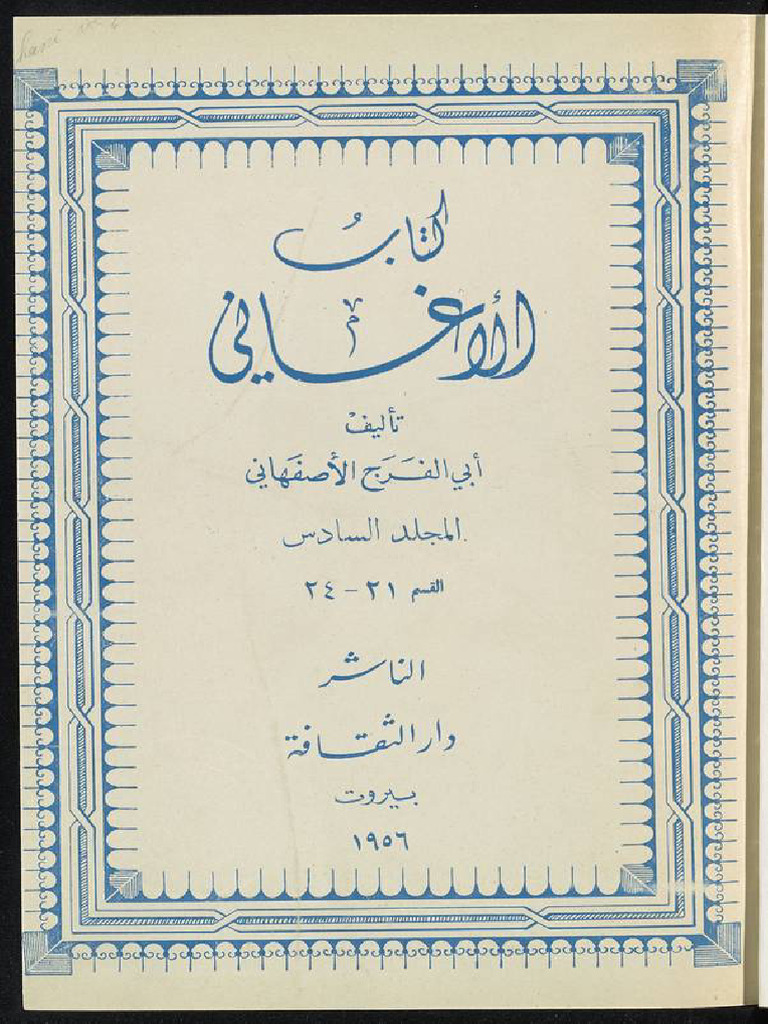 كتابُ
الأغاني
تأليف
أبي الفَرَج الأصفَهاني
المجلد السادس
القسم ٢١ - ٢٤
الناشر
دار الثقافة
بيروت
١٩٥٦